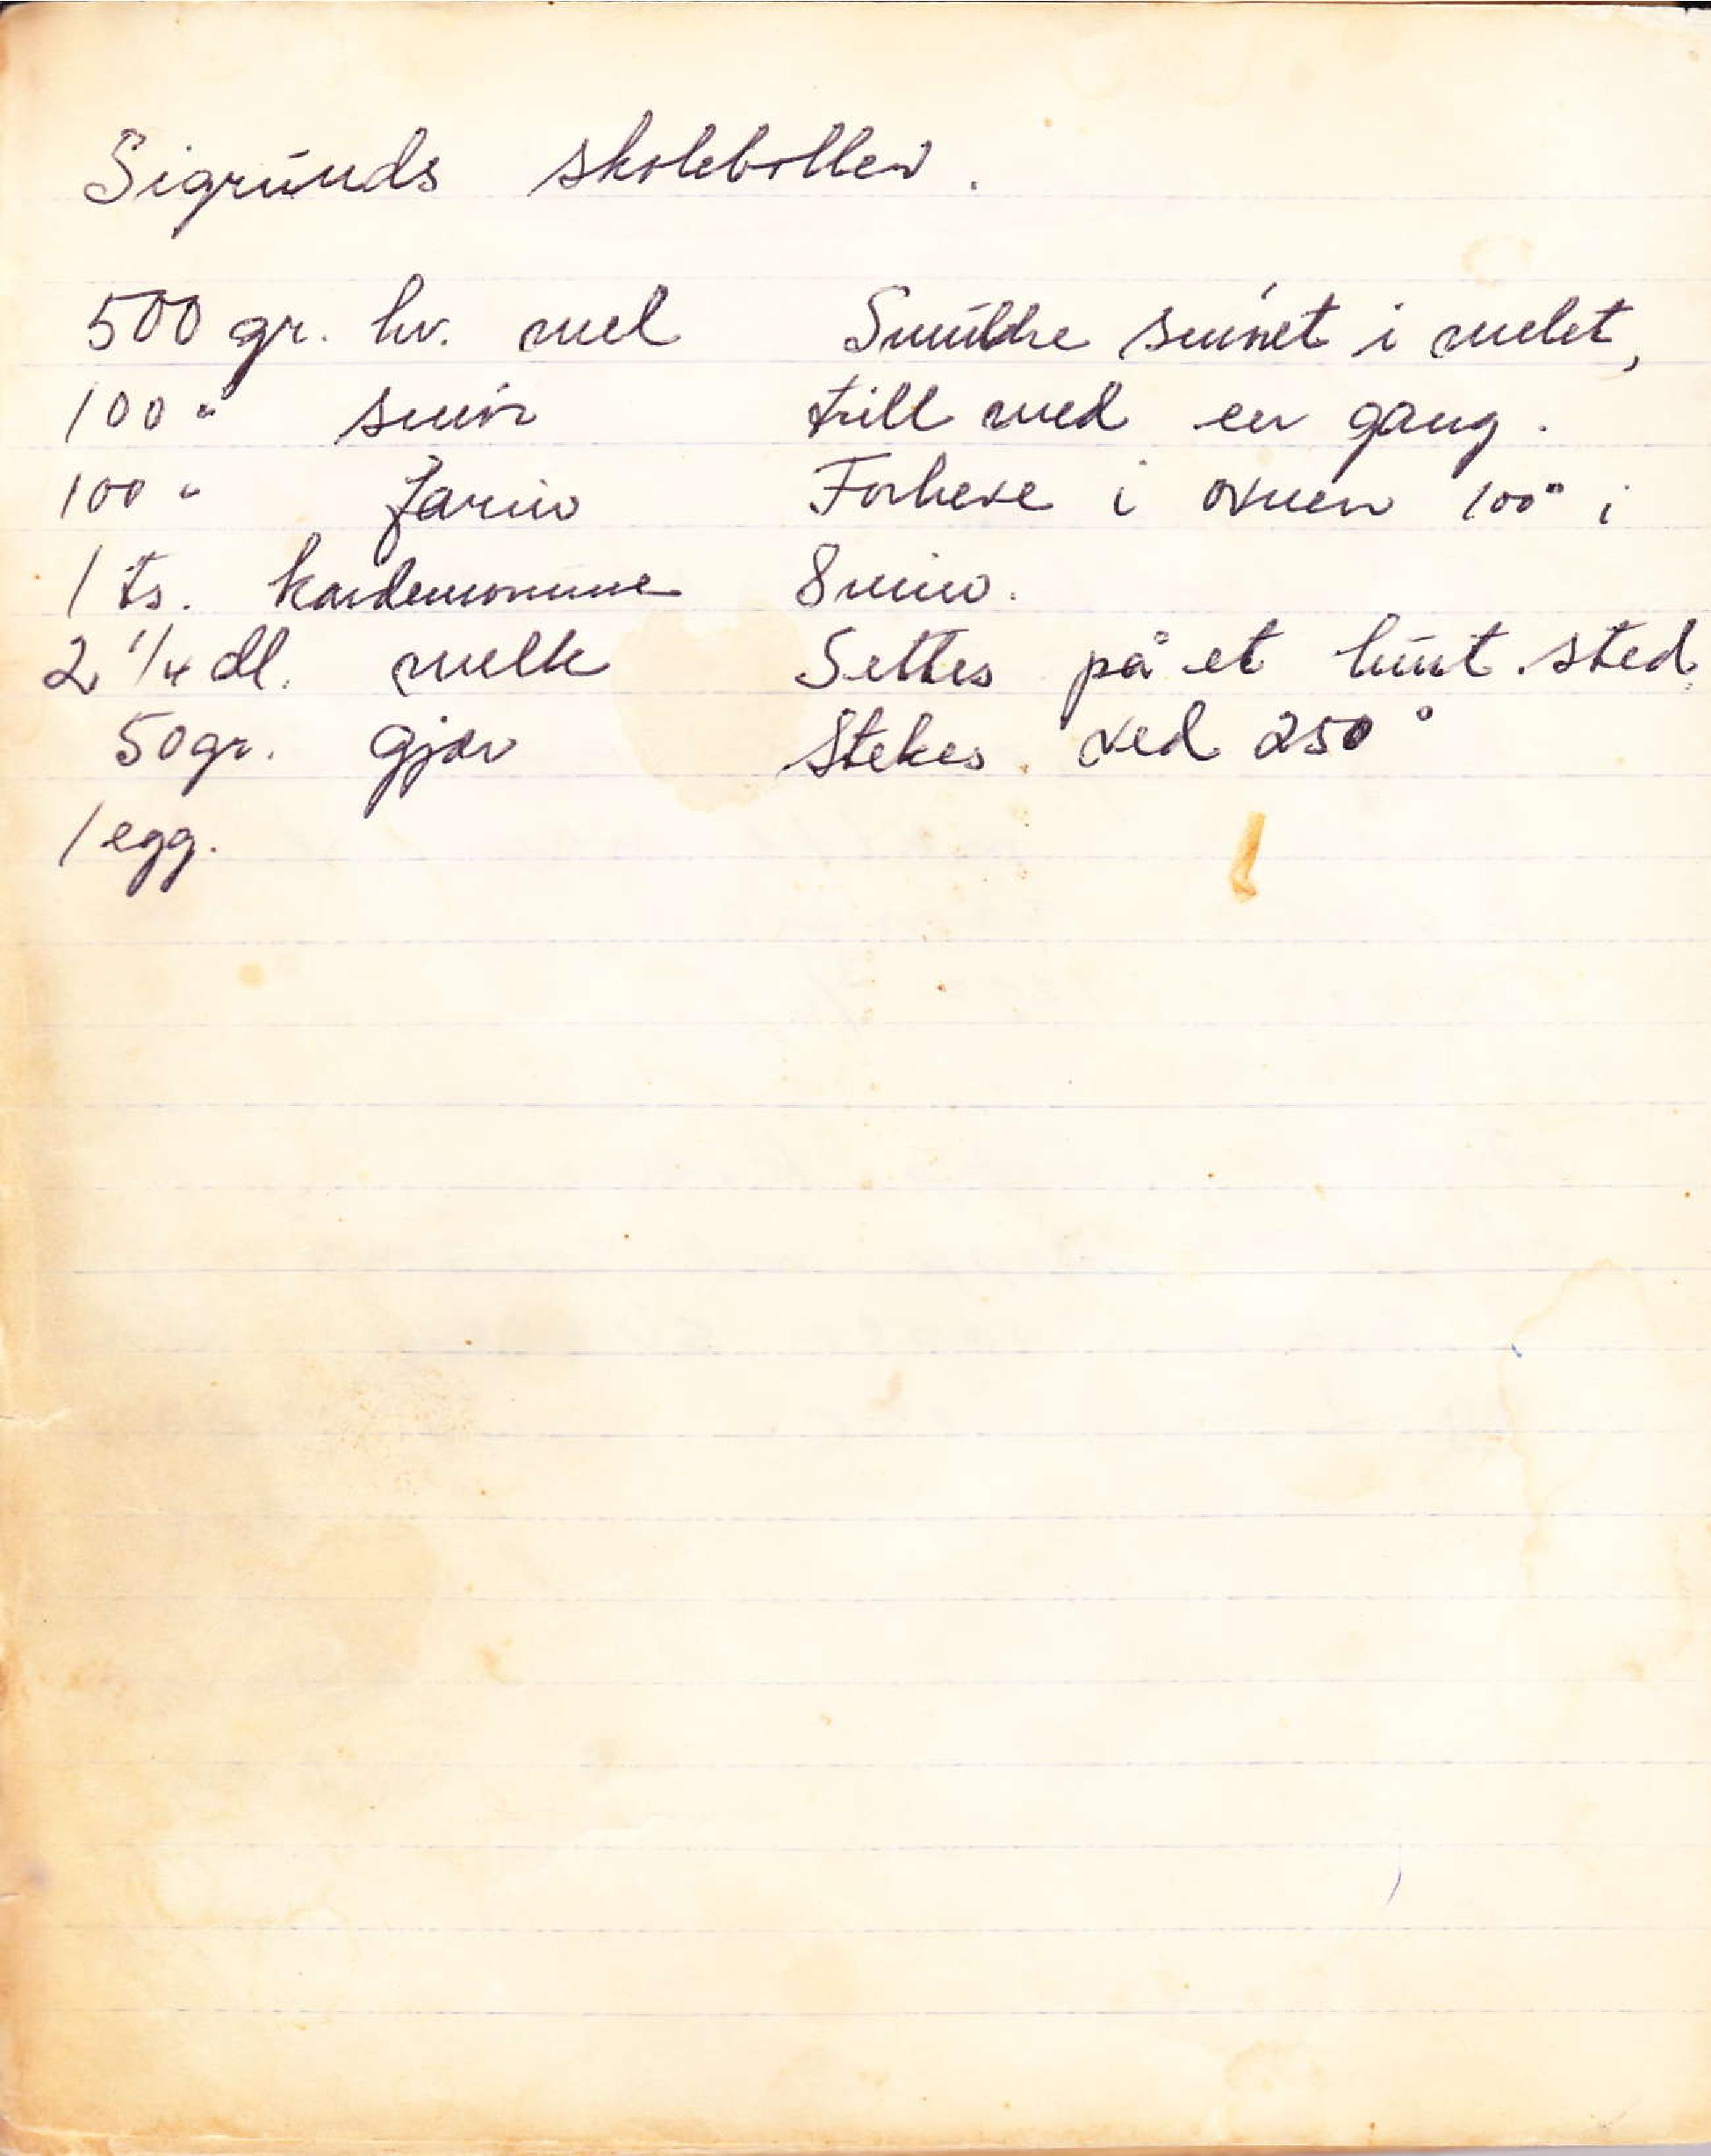 Sigrunds skoleboller.
500 gr. hv. mel
100 " smør
100 " farin
1 ts. kardemomme
2 1/4 dl. melk
50 gr. gjær
1 egg.
Smuldre smøret i melet,
trill med en gang.
Forheve i ovnen 100° i
8 min.
Settes på et lunt sted
Stekes ved 250°